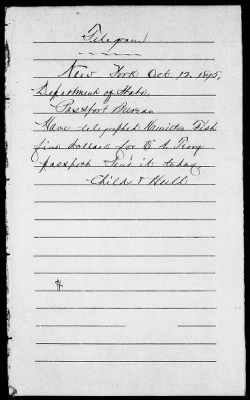 Telegram
New York Oct. 12. 1895,
Department of State,
Passport Bureau
Have telegraphed Hamilton Fish
five dollars for E. L. Terry
passport Send it today
Childs &